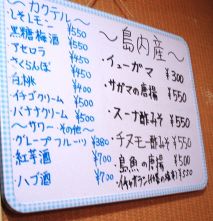 ～カクテル～
しそレモン ¥550
黒糖梅酒 ¥550
アセロラ ¥550
さくらんぼ ¥550
白桃 ¥400
イチゴクリーム ¥500
バナナクリーム ¥500
～サワー・その他～
グレープフルーツ ¥380
紅芋酒 ¥700
ハブ酒 ¥700
～島内産～
・イューガマ ¥300
・サガマの唐揚 ¥550
・スーナ酢みそ ¥550
・チヌモー酢みそ ¥550
・島魚の唐揚 ¥500